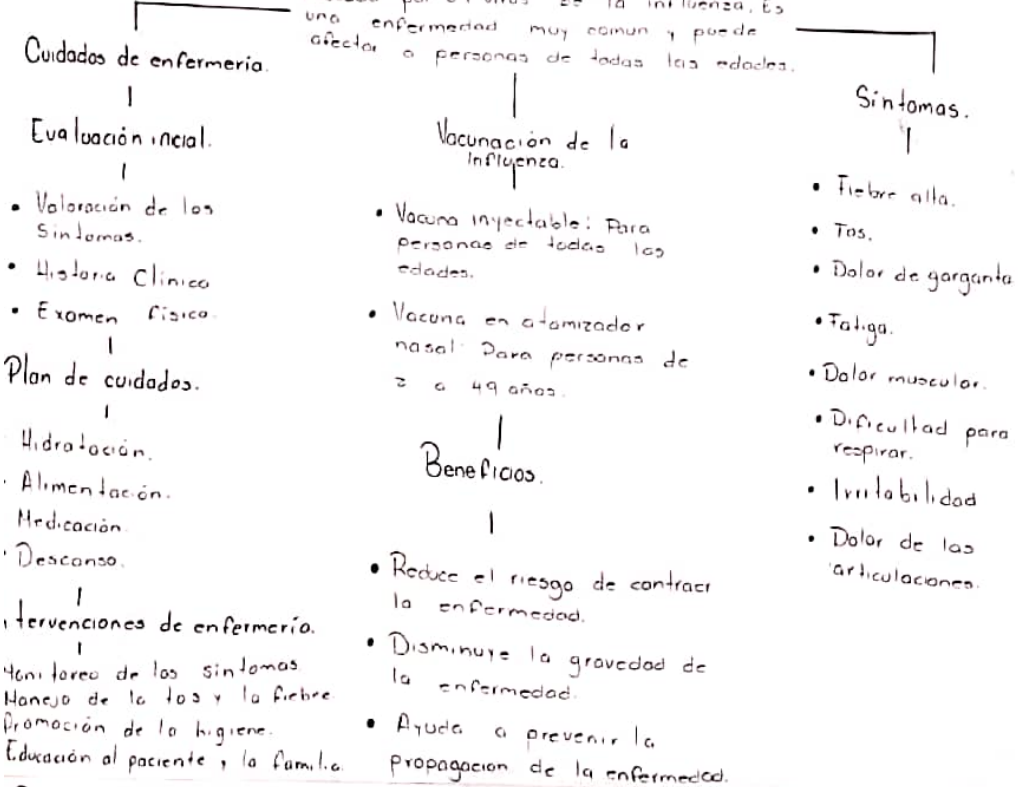 la influenza. Es
una enfermedad muy comun y puede
afectar a personas de todas las edades.
Cuidados de enfermeria.
Evaluación incial.
• Valoración de los
Sintomas.
• Historia Clinica
• Examen fisico.
Plan de cuidados.
Hidratación.
· Alimentación.
Medicación.
· Descanso.
tervenciones de enfermería.
Monitoreo de los sintomas
Manejo de la tos y la fiebre
Promoción de la higiene.
Educación al paciente y la familia.
Vacunación de la
influenza.
• Vacuna inyectable: Para
personas de todas las
edades.
• Vacuna en atomizador
nasal: Para personas de
2 a 49 años.
Beneficios.
• Reduce el riesgo de contraer
la enfermedad.
• Disminuye la gravedad de
la enfermedad.
• Ayuda a prevenir la
propagacion de la enfermedad.
Sintomas.
• Fiebre alta.
• Tos.
• Dolor de garganta
• Fatiga.
• Dolor muscular.
• Dificultad para
respirar.
• Irritabilidad
• Dolor de las
articulaciones.